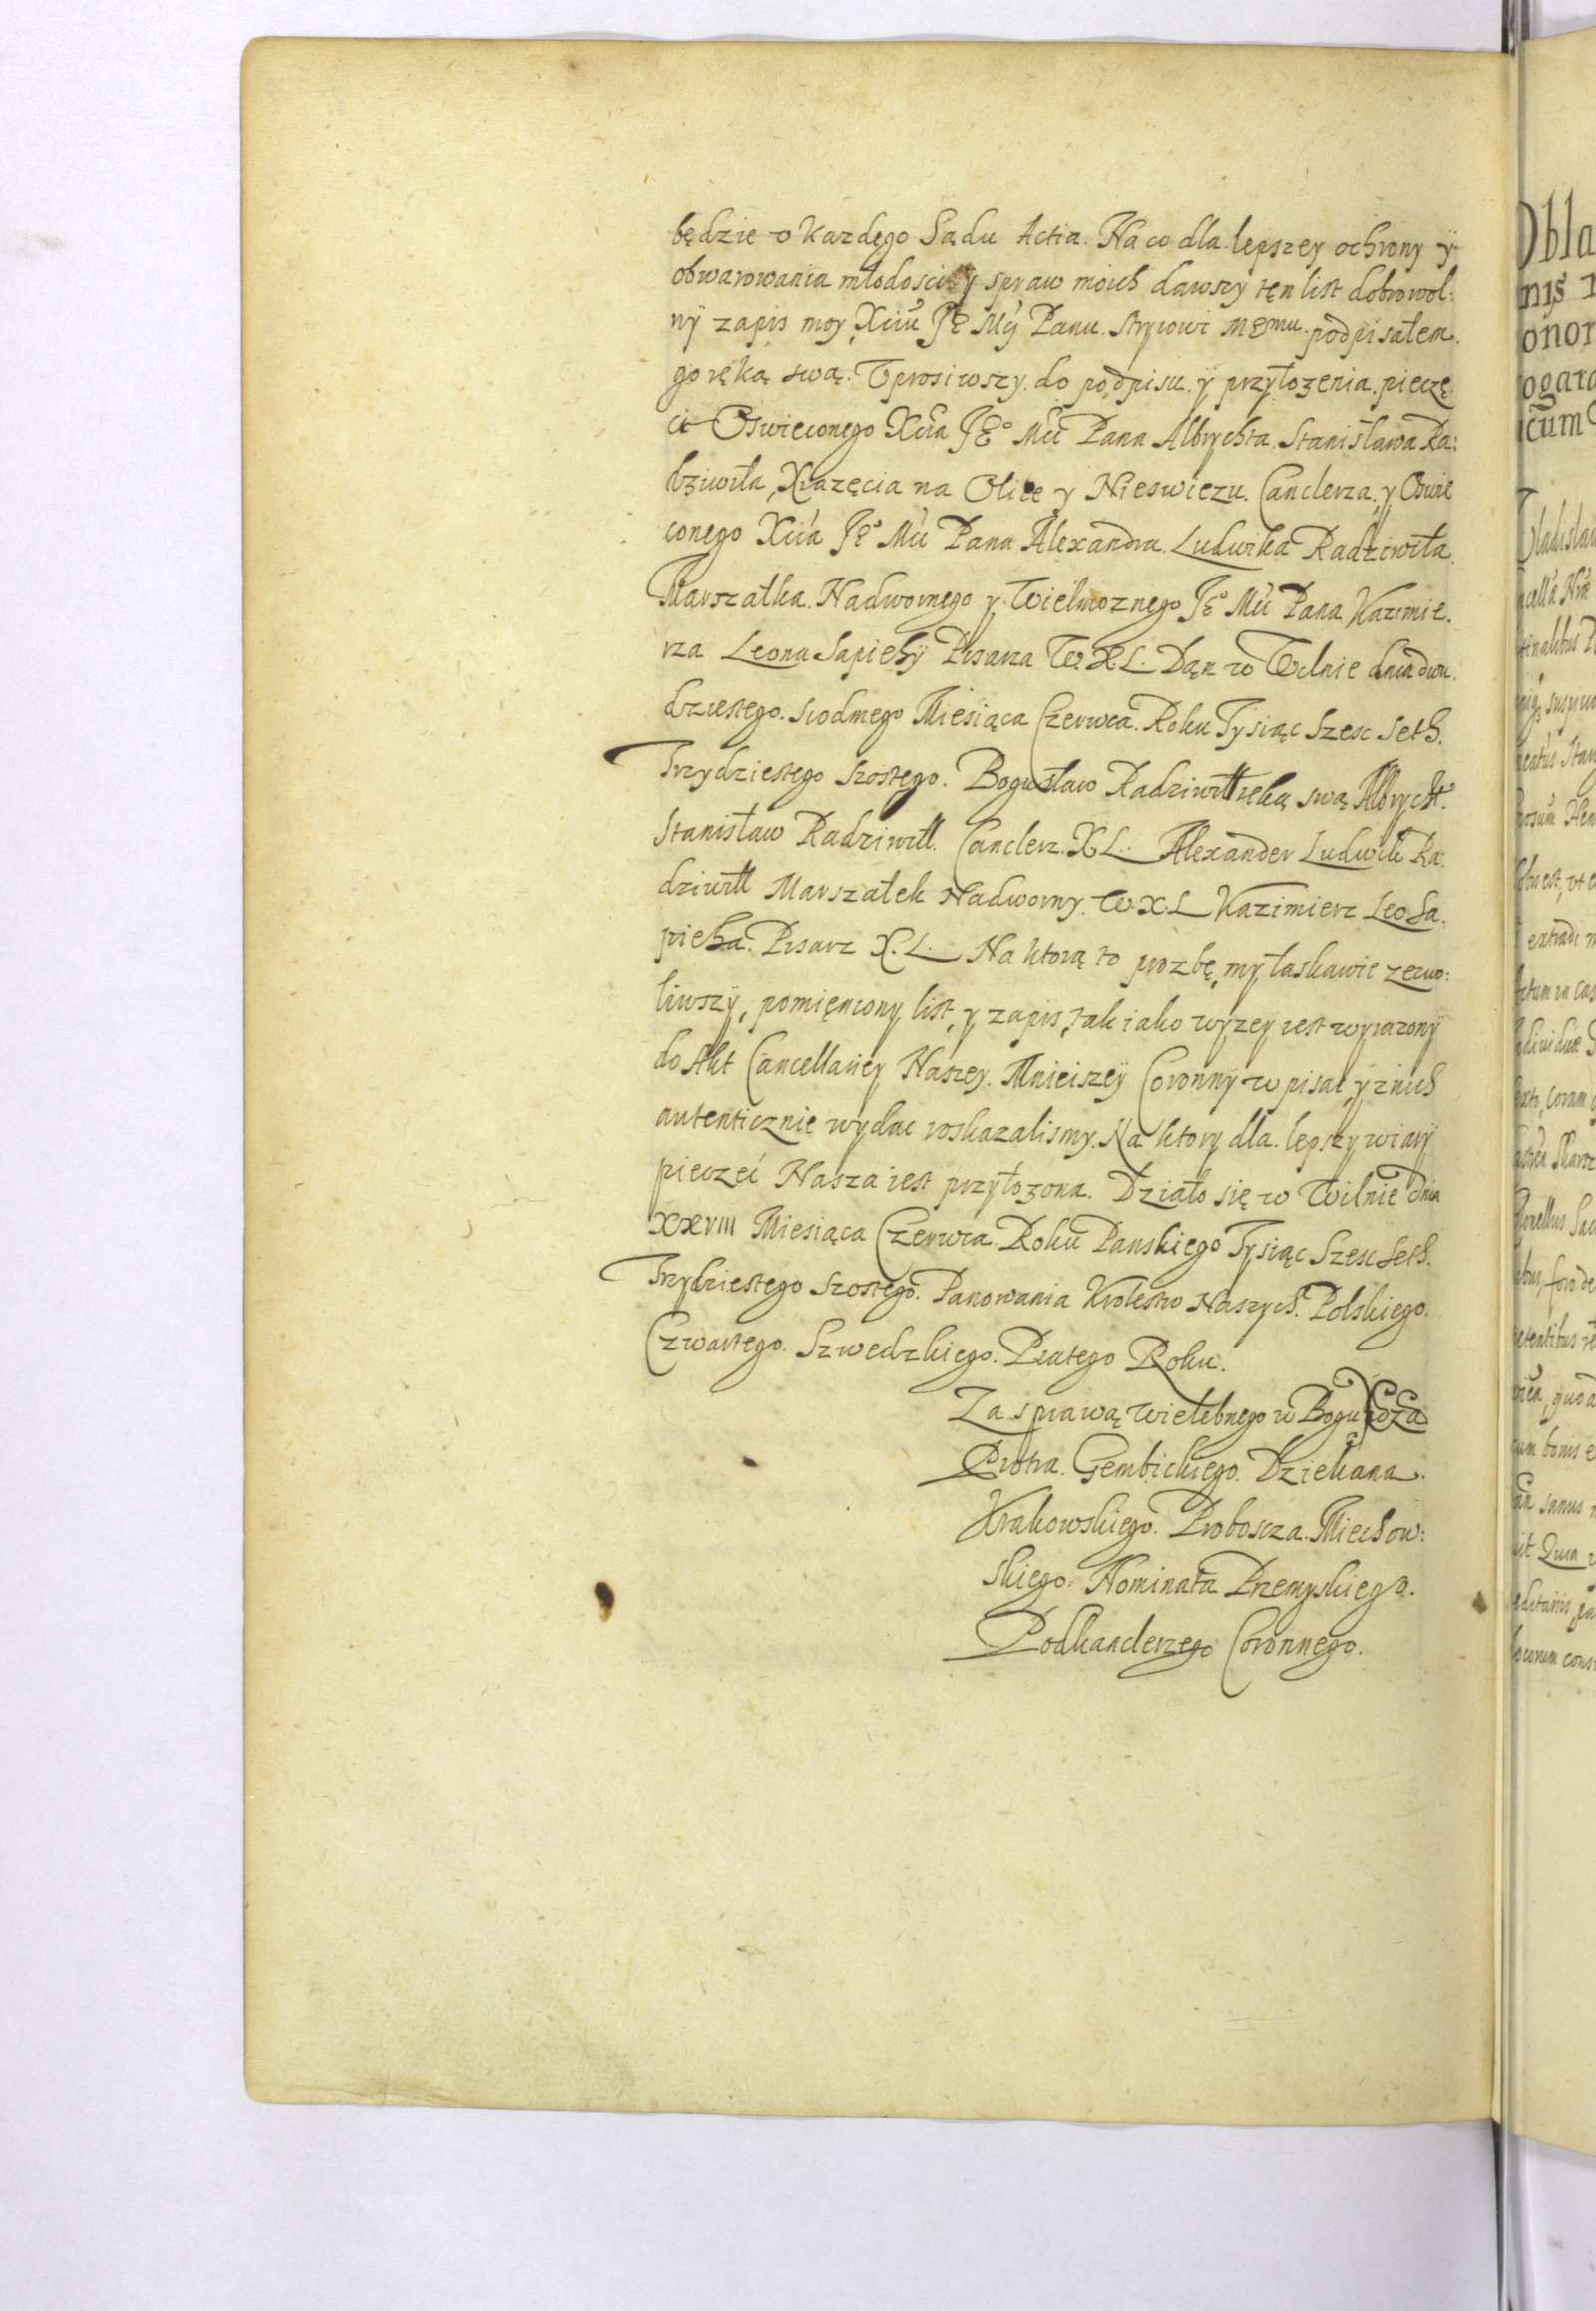 będzie v kazdego Sądu Actia. Na co dla lepszey ochrony ÿ
obwarowania młodosci ÿ spraw moich dawszy ten list dobrowol:
nÿ zapis moy Xciu Je Mci Panu Stryiowi memu podpisałem
go ręką swą. Vprosiwszy do podpisu ÿ przyłozenia pieczę
ci Oswieconego Xcia Jeo Mci Pana Albrychta Stanisława Ra:
dziwiła, Xiazęcia na Olice y Nieswiezu. Canclerza, y Oswie
conego Xcia Jeo Mci Pana Alexandra Ludwika Radziwiła
Marszałka Nadwornego y Wielmoznego Jeo Mci Pana Kazimie.
rza Leona Sapiehÿ Pisarza W. X. L. Dan w Wilnie dnia dwu
dziestego siodmego Miesiąca Czerwca Roku Tysiąc Szesc Seth
Trzydziestego szostego. Bogusław Radziwiłł ręką swą Albrycht
Stanisław Radziwiłł Canclerz X L. Alexander Ludwik Ra:
dziwiłł Marszałek Nadworny W. X. L Kazimierz Leo Sa:
pieha Pisarz X. L. Na ktorą to prozbę, my łaskawie zezwo:
liwszÿ, pomięniony list, y zapis, tak iako wyzey iest wyrazonÿ
do Akt Cancellariey Naszey Mnieiszeÿ Coronnÿ w pisac, y z nich
autenticznie wydac roskazalismy. Na ktory dla lepszy wiarÿ
pieczęc Nasza iest przyłozona. Działo się w Wilnie dnia
XXVIII Miesiąca Czerwca Roku Panskiego Tysiąc Szesc Seth
Trzydziestego szostego. Panowania Krolestw Naszych Polskiego
Czwartego. Szwedzkiego Piątego Roku.
Za sprawą wielebnego w Bogu Xdza
Piotra Gembickiego Dziekana
Krakowskiego. Proboscza Miechow:
skiego. Nominata Przemyskiego.
Podkanclerzego Coronnego.